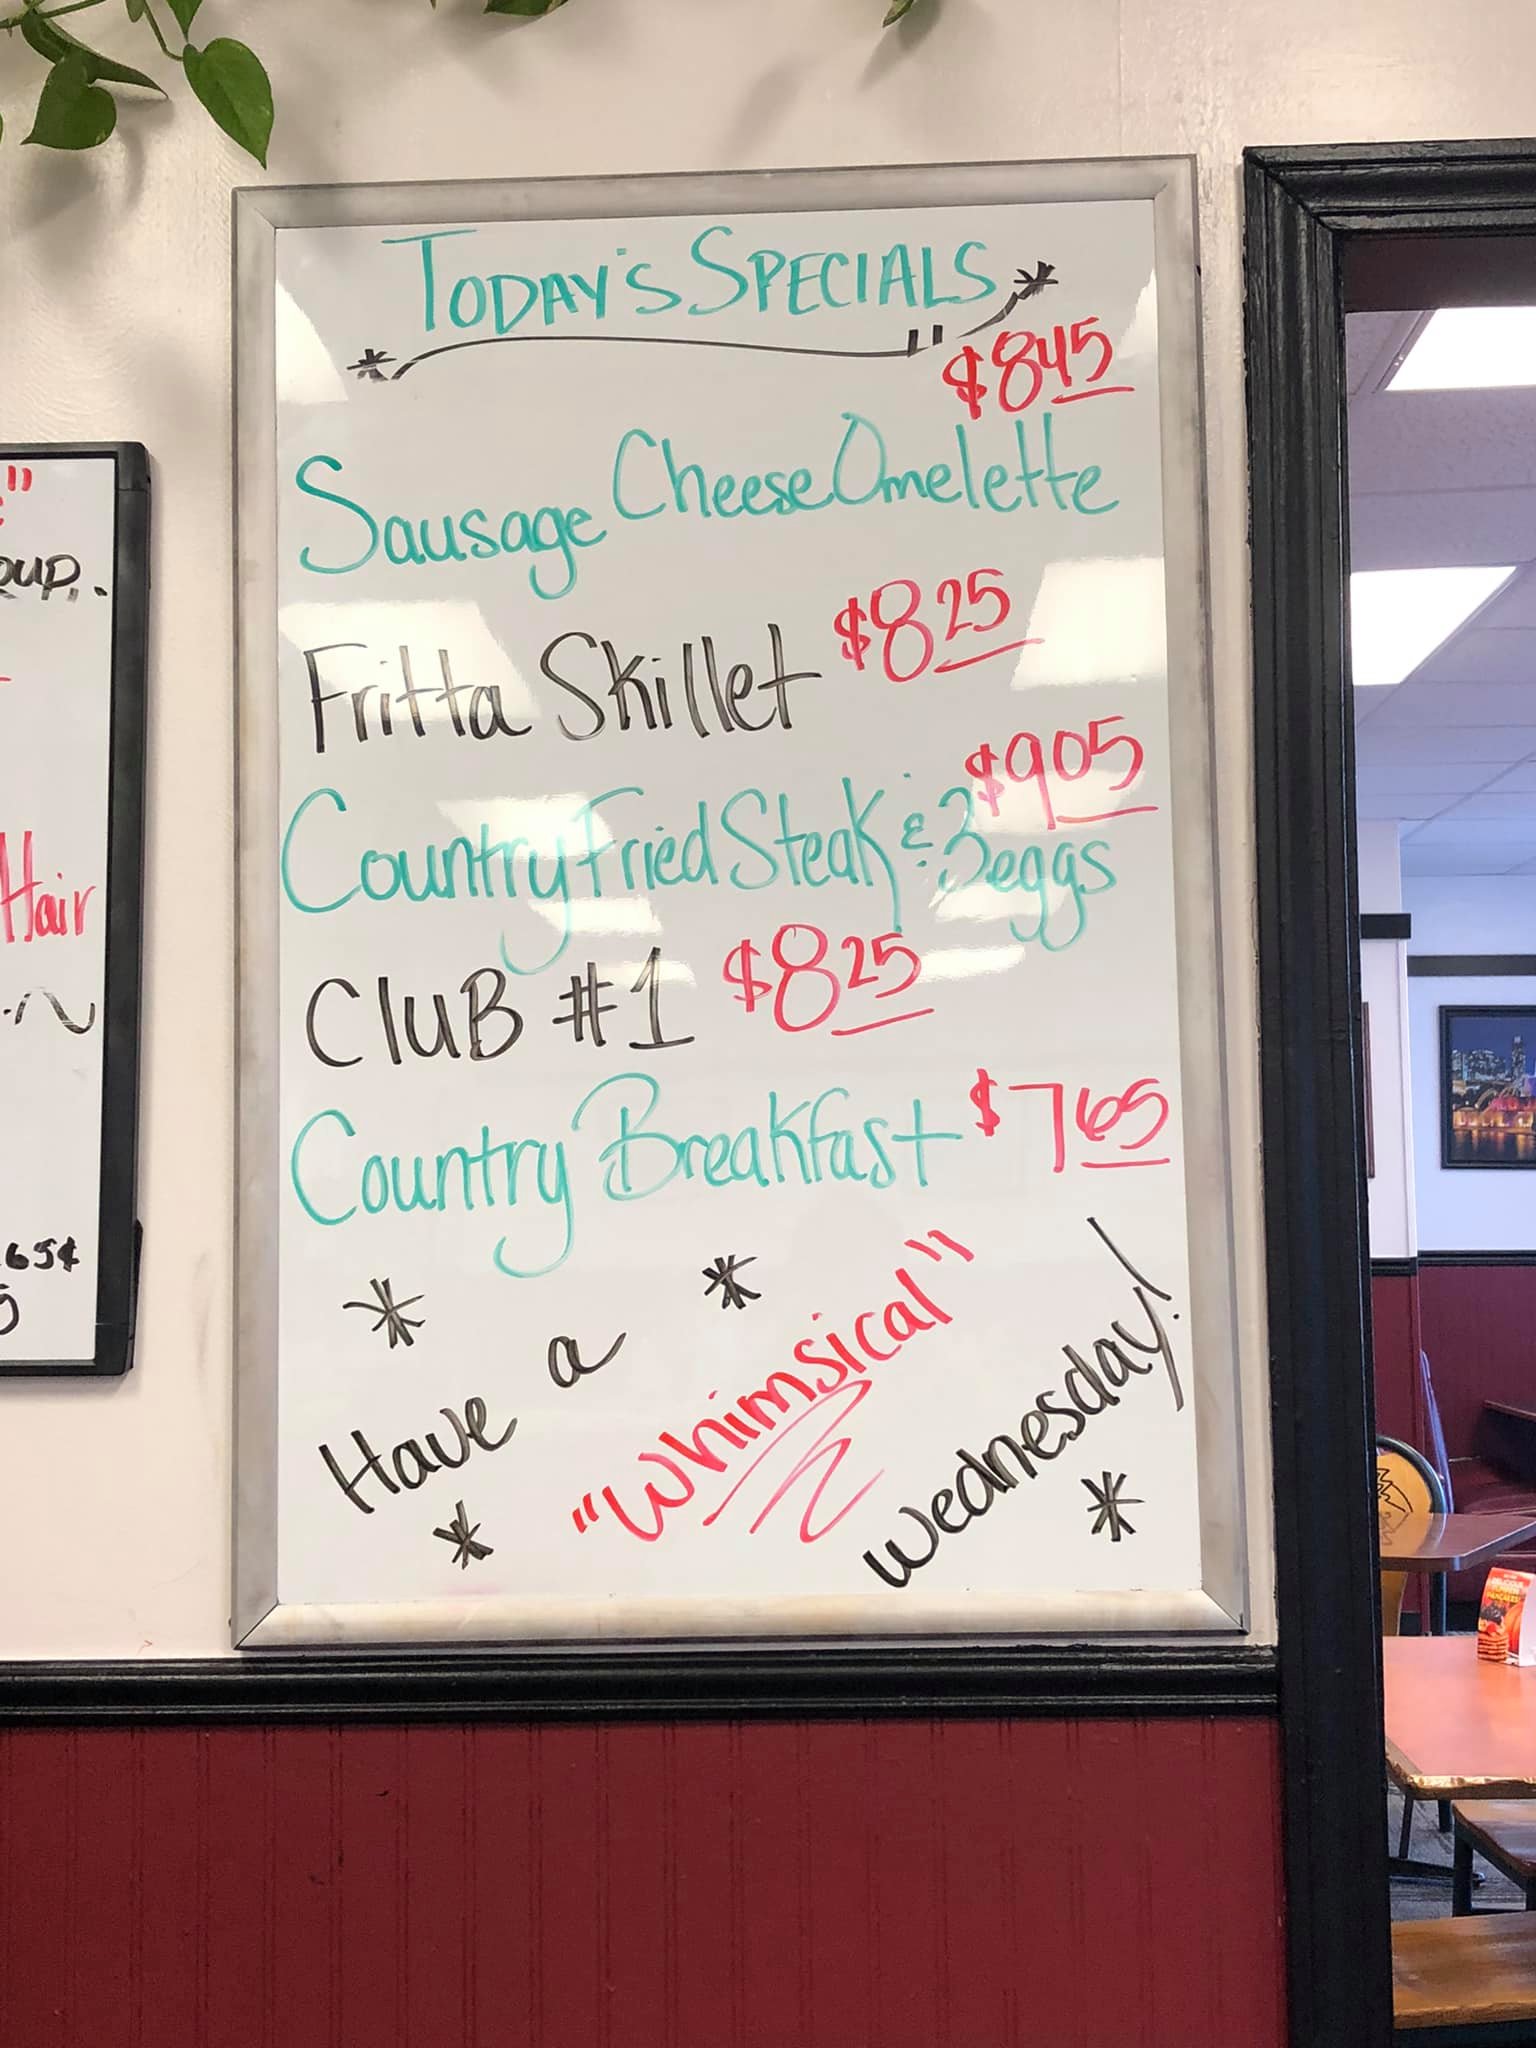 TODAY'S SPECIALS
$8.45
Sausage Cheese Omelette
Fritta Skillet $8.25
$9.05
Country Fried Steak & 3 eggs
CluB #1 $8.25
Country Breakfast $7.65
Have a
"Whimsical"
Wednesday!
Hair
65¢